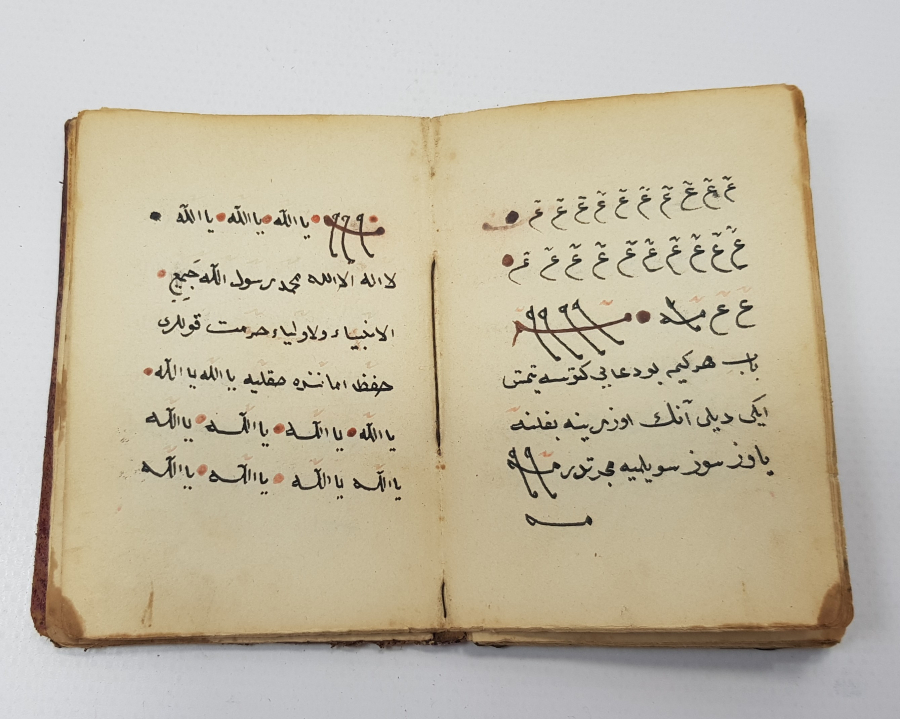 ع ع ع ع ع ع ع ع ع ع
ع ع ع ع ع ع ع ع ع ع
ع ع
باب هر كيم بو دعايي كتورسه يتمش
ايكى ديلى آنك اوزرينه بغلنه
ياوز سوز سويلميه مجربدر
يا الله يا الله يا الله يا الله
لا اله الا الله محمد رسول الله جَمِيعِ
الانبياء ولاولياء حرمت قوللرى
حفظ امانده صقليه يا الله يا الله
يا الله يا الله يا الله يا الله
يا الله يا الله يا الله يا الله